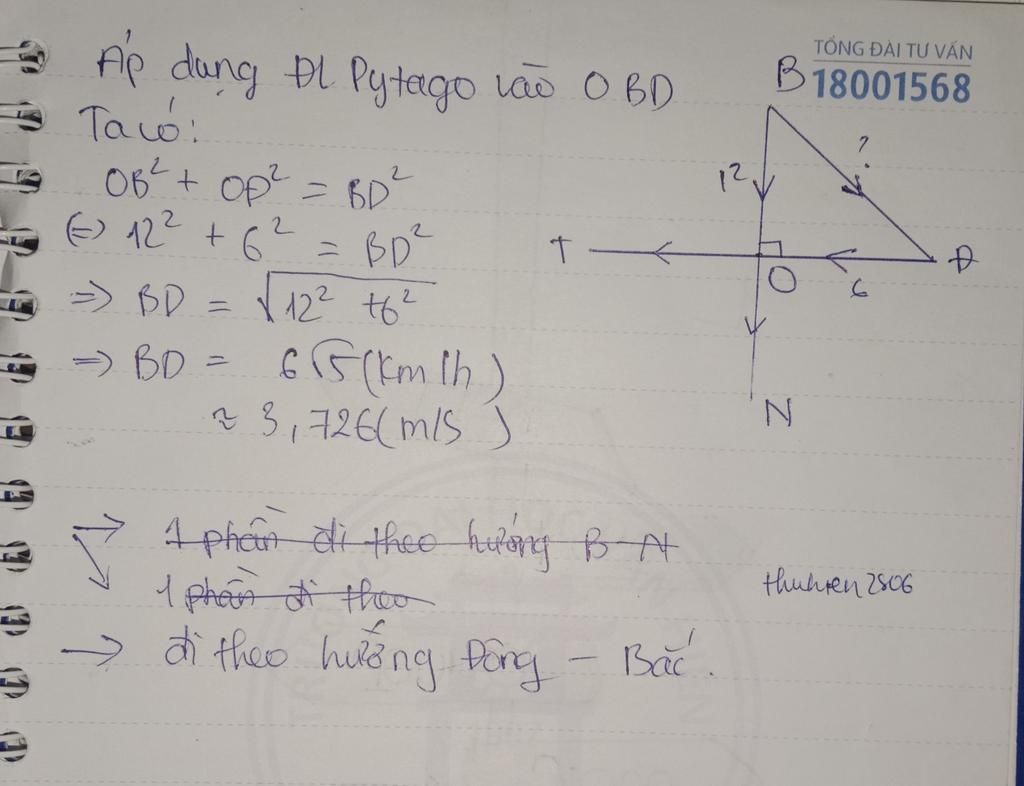 TỔNG ĐÀI TƯ VẤN
18001568
Áp dụng ĐL Pytago vào OBD
Ta có:
OB² + OD² = BD²
(=) 12² + 6² = BD²
=> BD = √12² +6²
=> BD = 6√5 (km/h)
≈ 3,726 (m/s)
B
12
?
T
O
6
Đ
N
→ 1 phần đi theo hướng B-N
1 phần đi theo
→ đi theo hướng Đông - Bắc.
thuhien2806